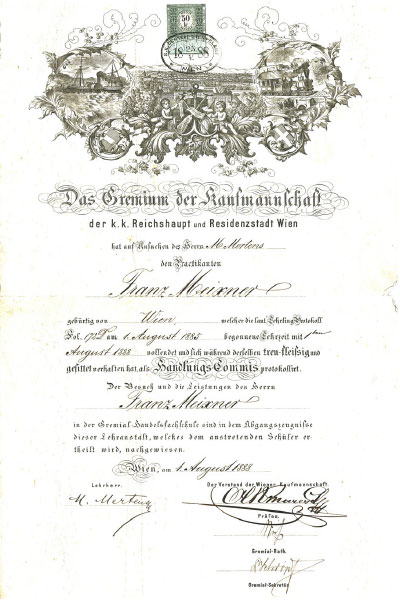 50
18 88
WIEN
Das Gremium der Kaufmannschaft
der k.k. Reichshaupt und Residenzstadt Wien
hat auf Ansuchen des Herrn M. Mertens
den Practikanten
Franz Meixner
gebürtig von Wien welcher die laut Lehrling-Protokoll
Fol. am 1. August 1885 begonnene Lehrzeit mit
August 1888 vollendet und sich während derselben treu-fleissig und
gesittet verhalten hat, als Handlungs-Commis protokollirt.
Der Besuch und die Leistungen des Herrn
Franz Meixner
in der Gremial-Handelsfachschule sind in dem Abgangszeugnisse
dieser Lehranstalt, welches dem austretenden Schüler er-
theilt wird, nachgewiesen.
Wien, am 1. August 1888
Lehrherr.
Der Vorstand der Wiener Kaufmannschaft.
M. Mertens
Präses.
Gremial-Rath.
Gremial-Secretär